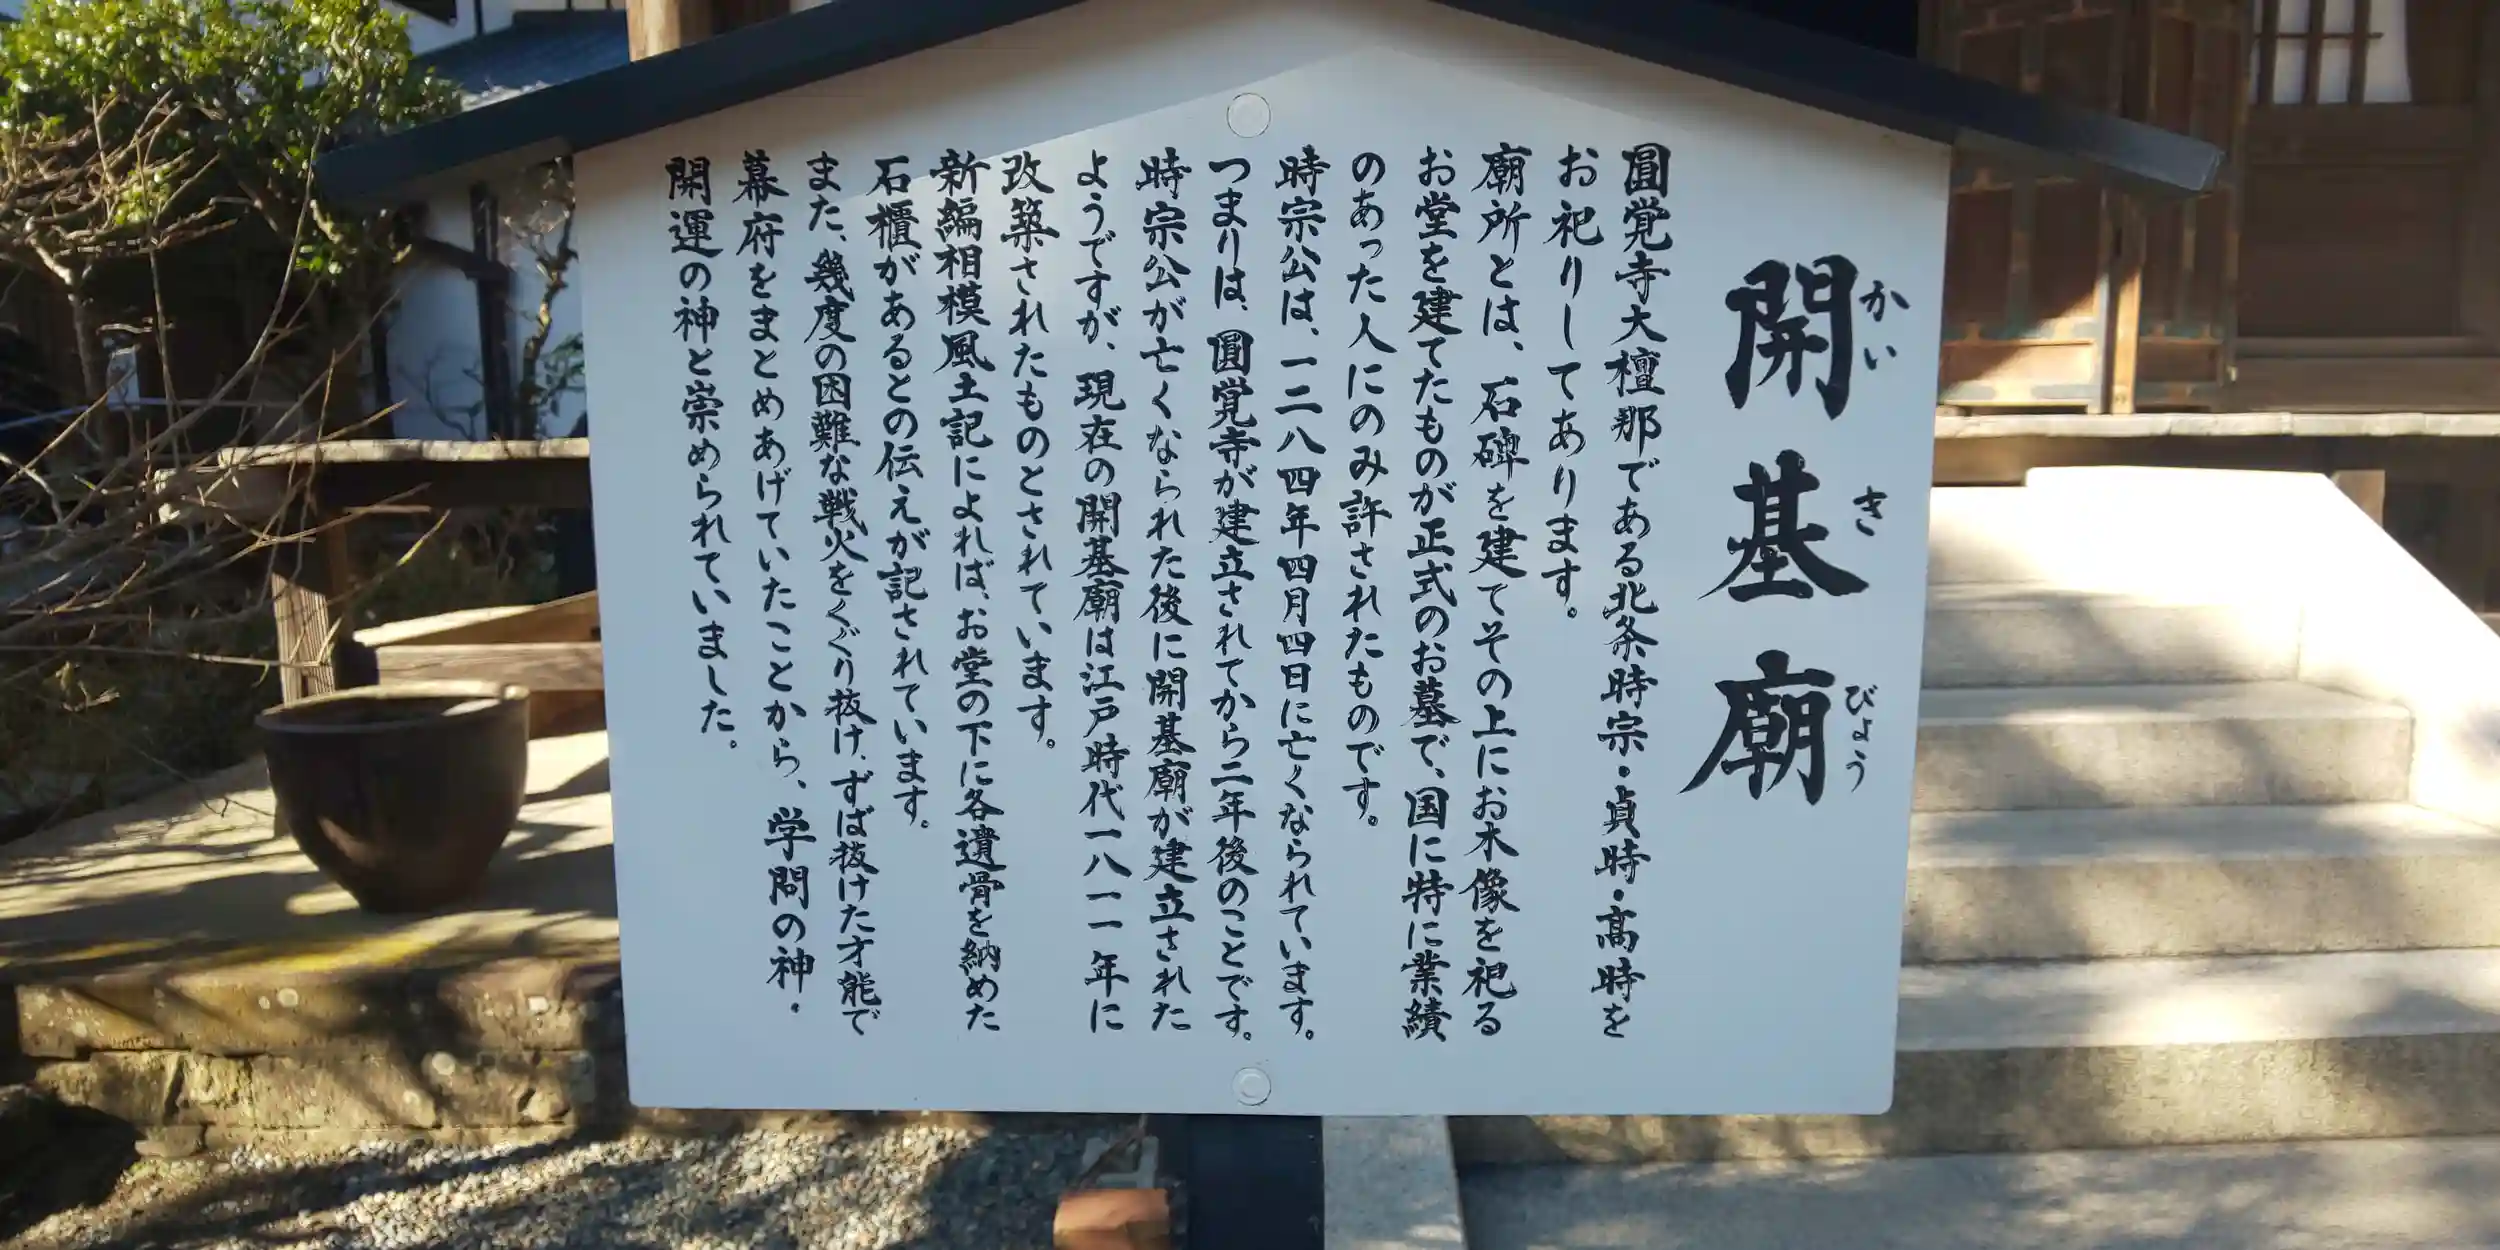 開基廟
かいきびょう
圓覚寺大檀那である北条時宗・貞時・高時を
お祀りしてあります。
廟所とは、石碑を建てその上にお木像を祀る
お堂を建てたものが正式のお墓で、国に特に業績
のあった人にのみ許されたものです。
時宗公は、一二八四年四月四日に亡くなられています。
つまりは、圓覚寺が建立されてから二年後のことです。
時宗公が亡くなられた後に開基廟が建立された
ようですが、現在の開基廟は江戸時代一八一一年に
改築されたものとされています。
新編相模風土記によれば、お堂の下に各遺骨を納めた
石櫃があるとの伝えが記されています。
また、幾度の困難な戦火をくぐり抜け、ずば抜けた才能で
幕府をまとめあげていたことから、学問の神・
開運の神と崇められていました。